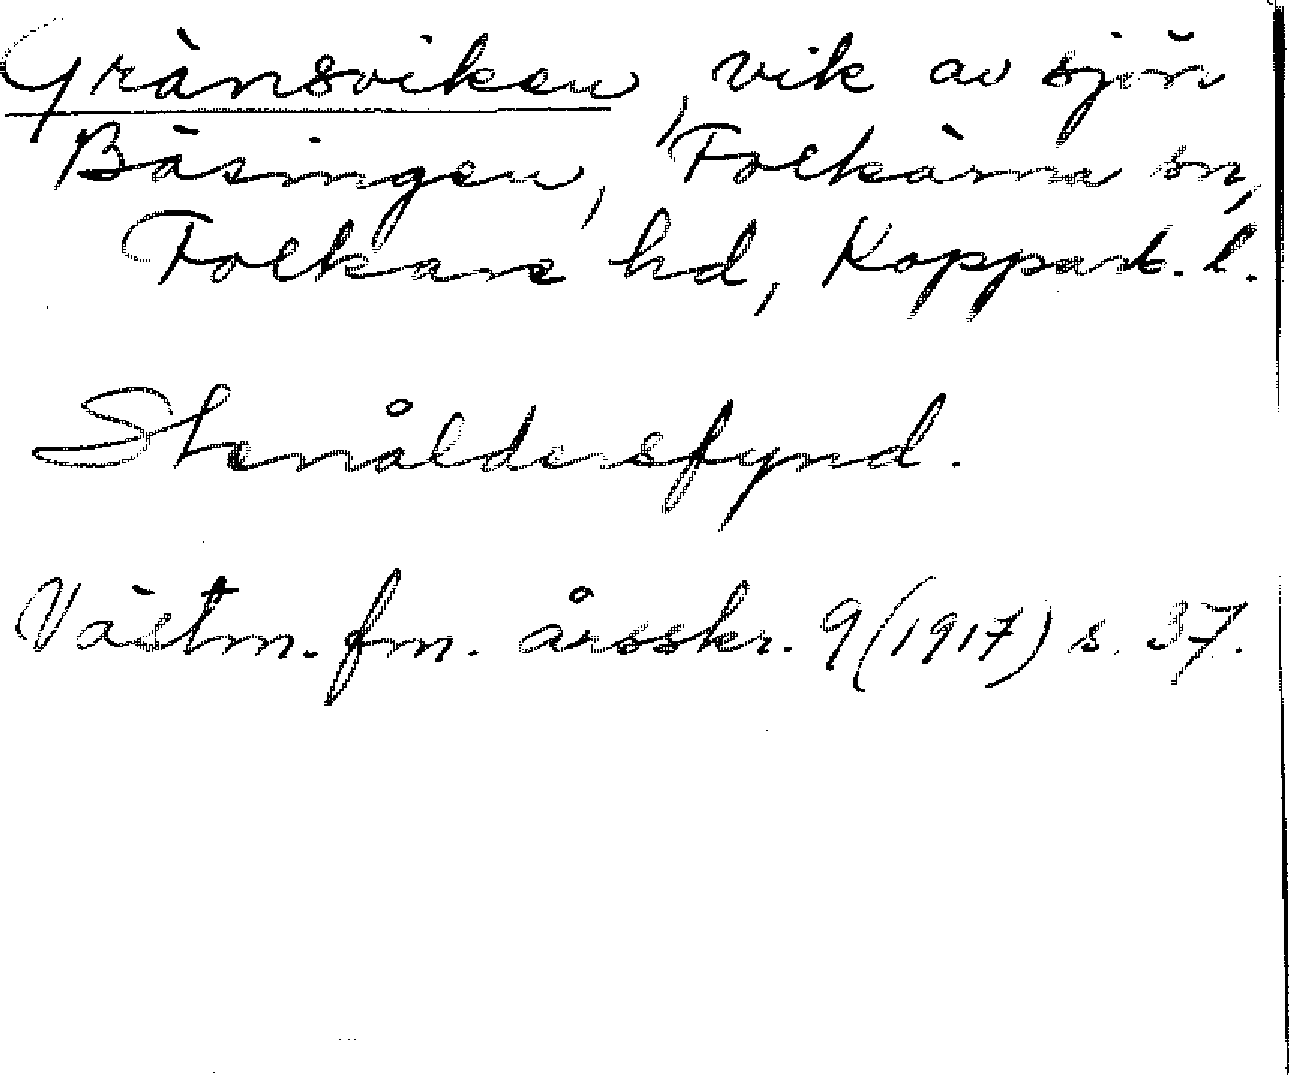 Gränsviken, vik av sjön
Bäsingen, Folkärna sn,
Folkare hd, Kopparb. l.
Stenåldersfynd.
Västm. fm. årsskr. 9 (1917) s. 37.